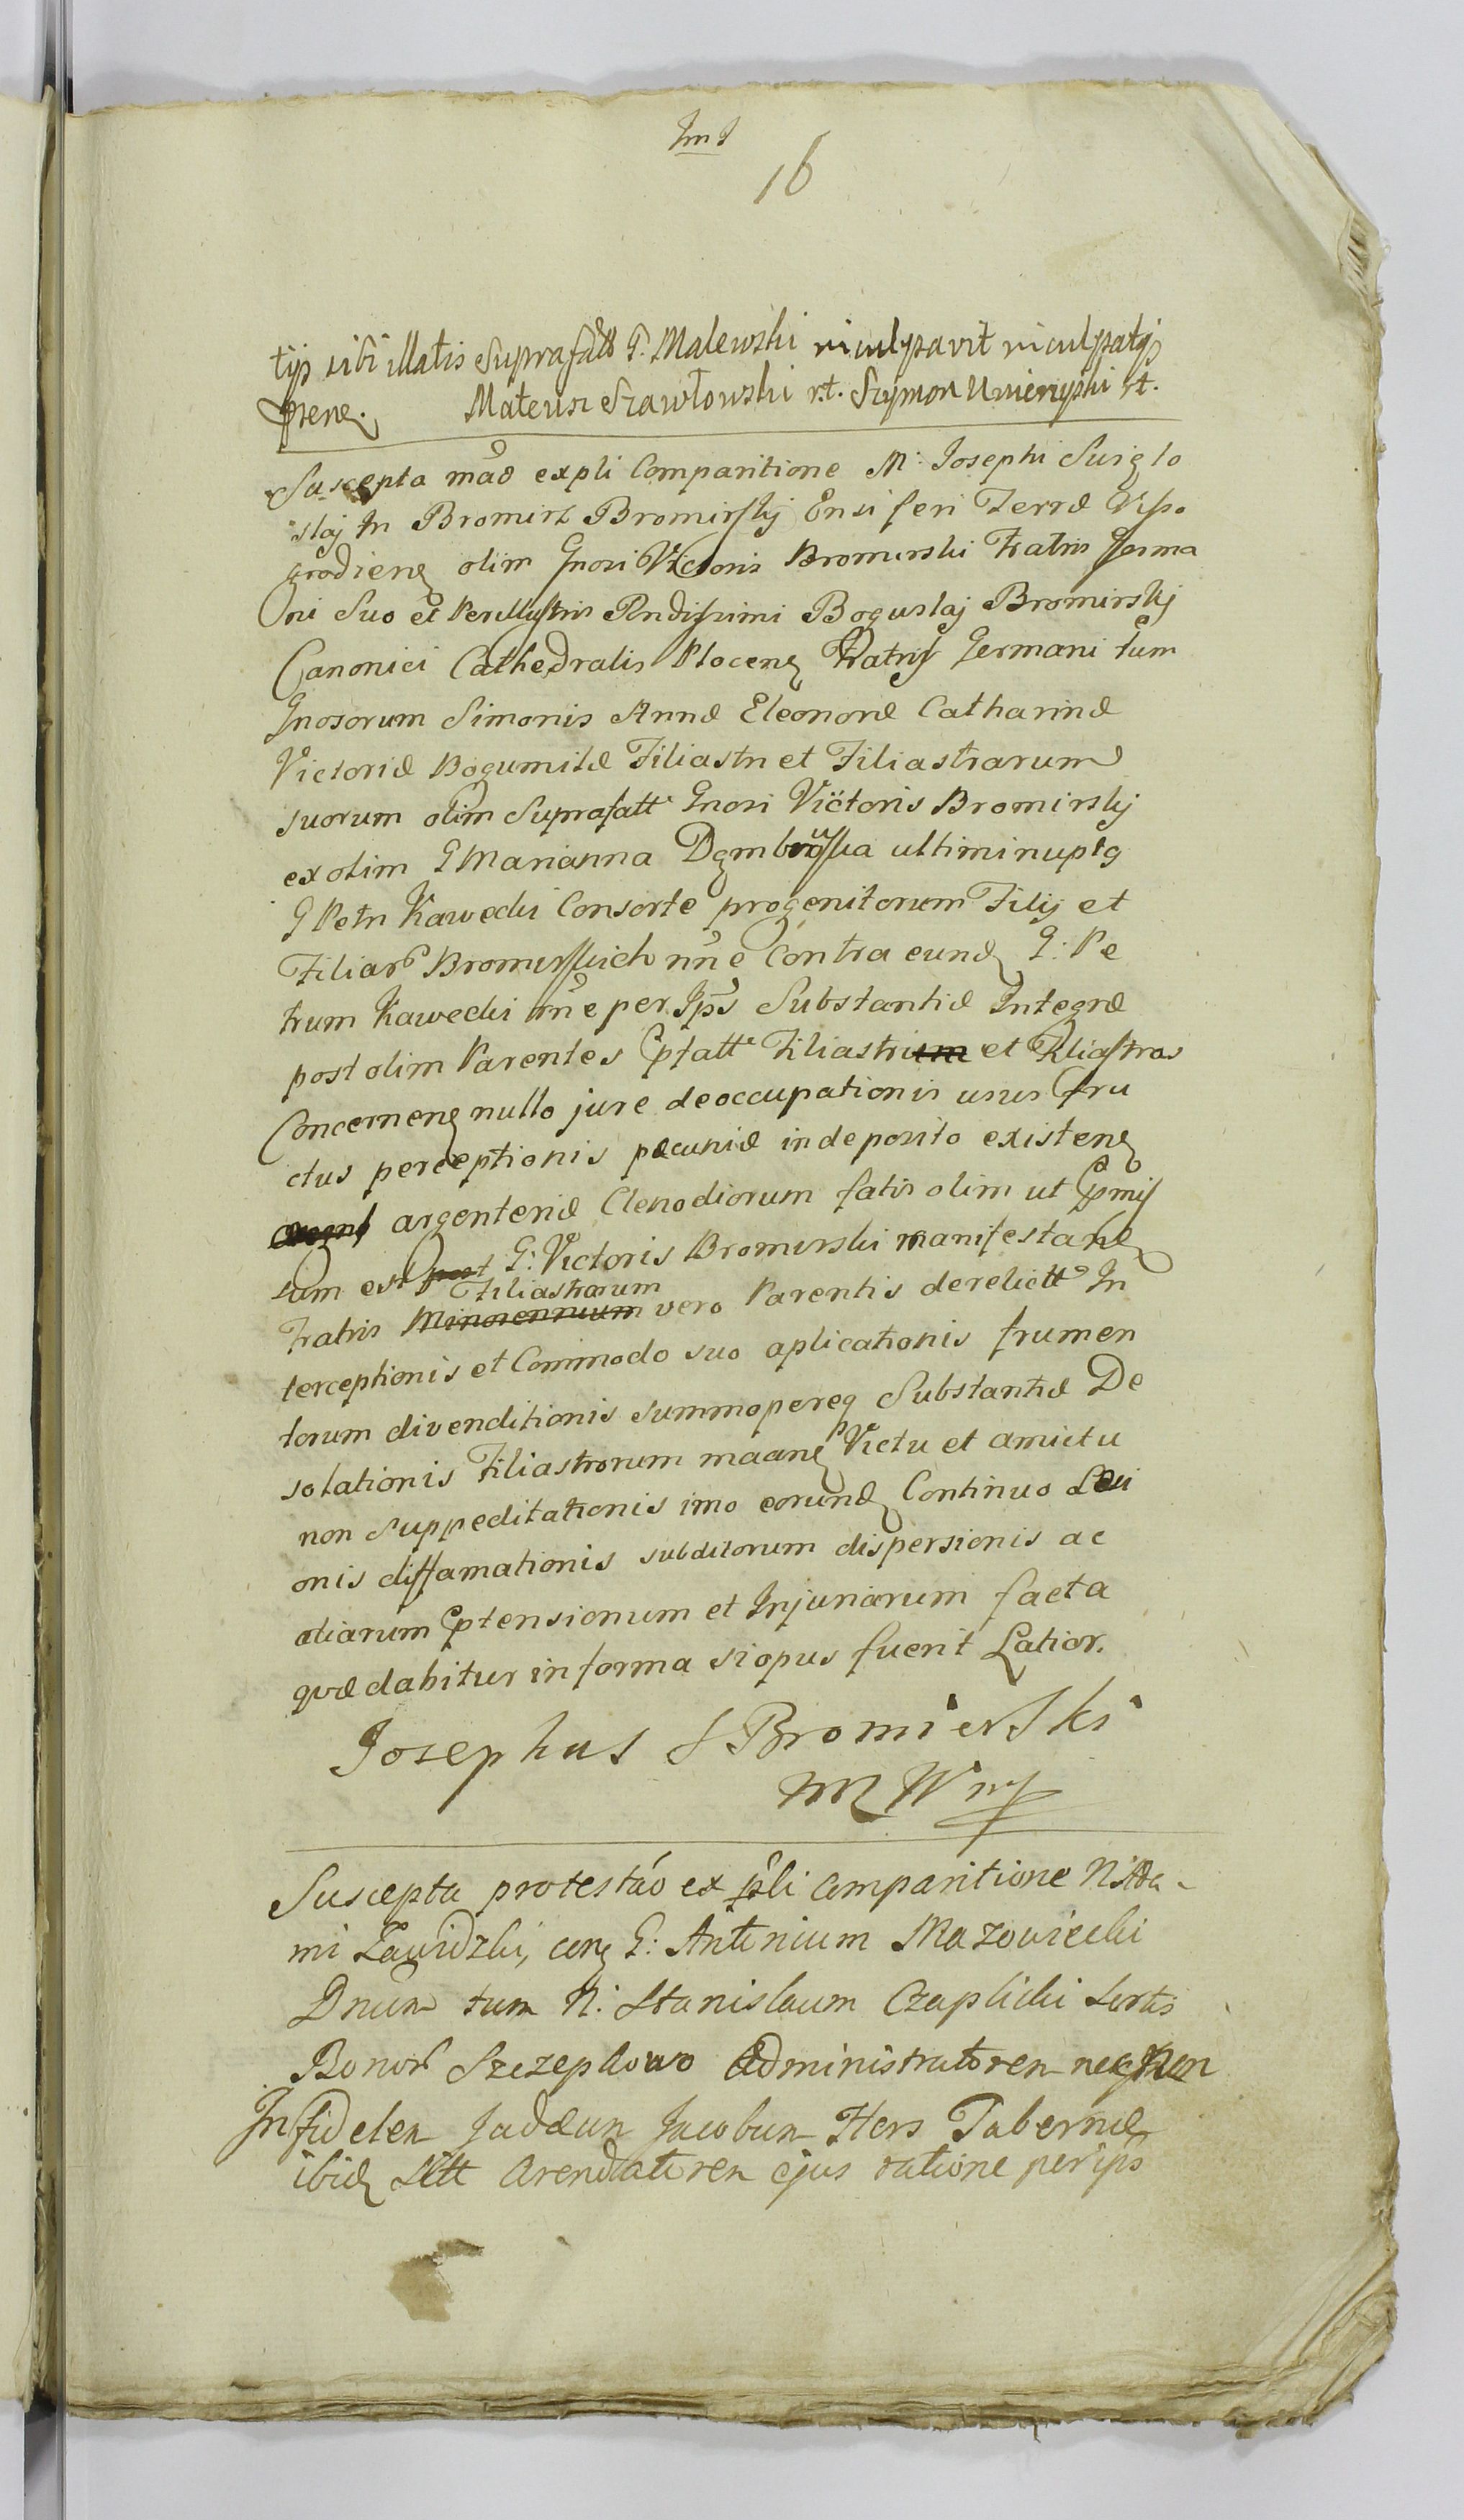 Im I
16
tijs sibi illatis Suprafatt G. Malewski inculpavit inculpatq
prene. Mateusz Szawłowski r.t. Szymon Umienyski rt.
Suscepta mão expli Comparitione M: Josephi Swięto
slaj In Bromirz Bromirskij Ensiferi Terræ Viszo
grodien olim Gnosi Victoris Bromirski Fratris Germa
ni Suo et Perillustris Rndissimi Boguslaj Bromirskij
Canonici Cathedralis Plocen Fratris Germani tum
Gnosorum Simonis Annæ Eleonoræ Catharinæ
Victoriæ Bogumilæ Filiastri et Filiastrarum
suorum olim Suprafatt Gnosi Victoris Bromirskij
ex olim G Marianna Dęmbowska ultimi nuptą
G Petri Kawecki Consorte progenitorum Filij et
Filiar Bromirskich nne Contra eund G: Pe
trum Kawecki rne per Ips Substantiæ Integræ
post olim Parentes Pfatt Filiastrum et Filiastras
Concernen nullo jure deoccupationis usus fru
ctus perceptionis pecuniæ in deposito existen
argenteriæ Clenodiorum fatis olim ut Pmis
sum est post G: Victoris Bromirski manifestan
Filiastrarum
Fratris Minorennium vero Parentis derelictt In
terceptionis et Commodo suo aplicationis frumen
torum divenditionis summopereq Substantiæ De
solationis Filiastrorum maan Victu et amictu
non Suppeditationis imo eorund Continuo Læsi
onis diffamationis subditorum dispersionis ac
aliarum Ptensionum et Injuriarum facta
quæ dabitur in forma si opus fuerit Latior.
Josephus S Bromierski
M W mp
Suscepta protestáo ex pli comparitione N Ada-
mi Zawidzki, con G: Antonium Mazowiecki
Dnum tum N: Stanislaum Czaplicki Sortis
Bonor Szczepkowo Administratorem nec non
Infidelem Judæum Jacobum Hers Tabernæ
ibid Sitt Arendatorem ejus ratione per ips